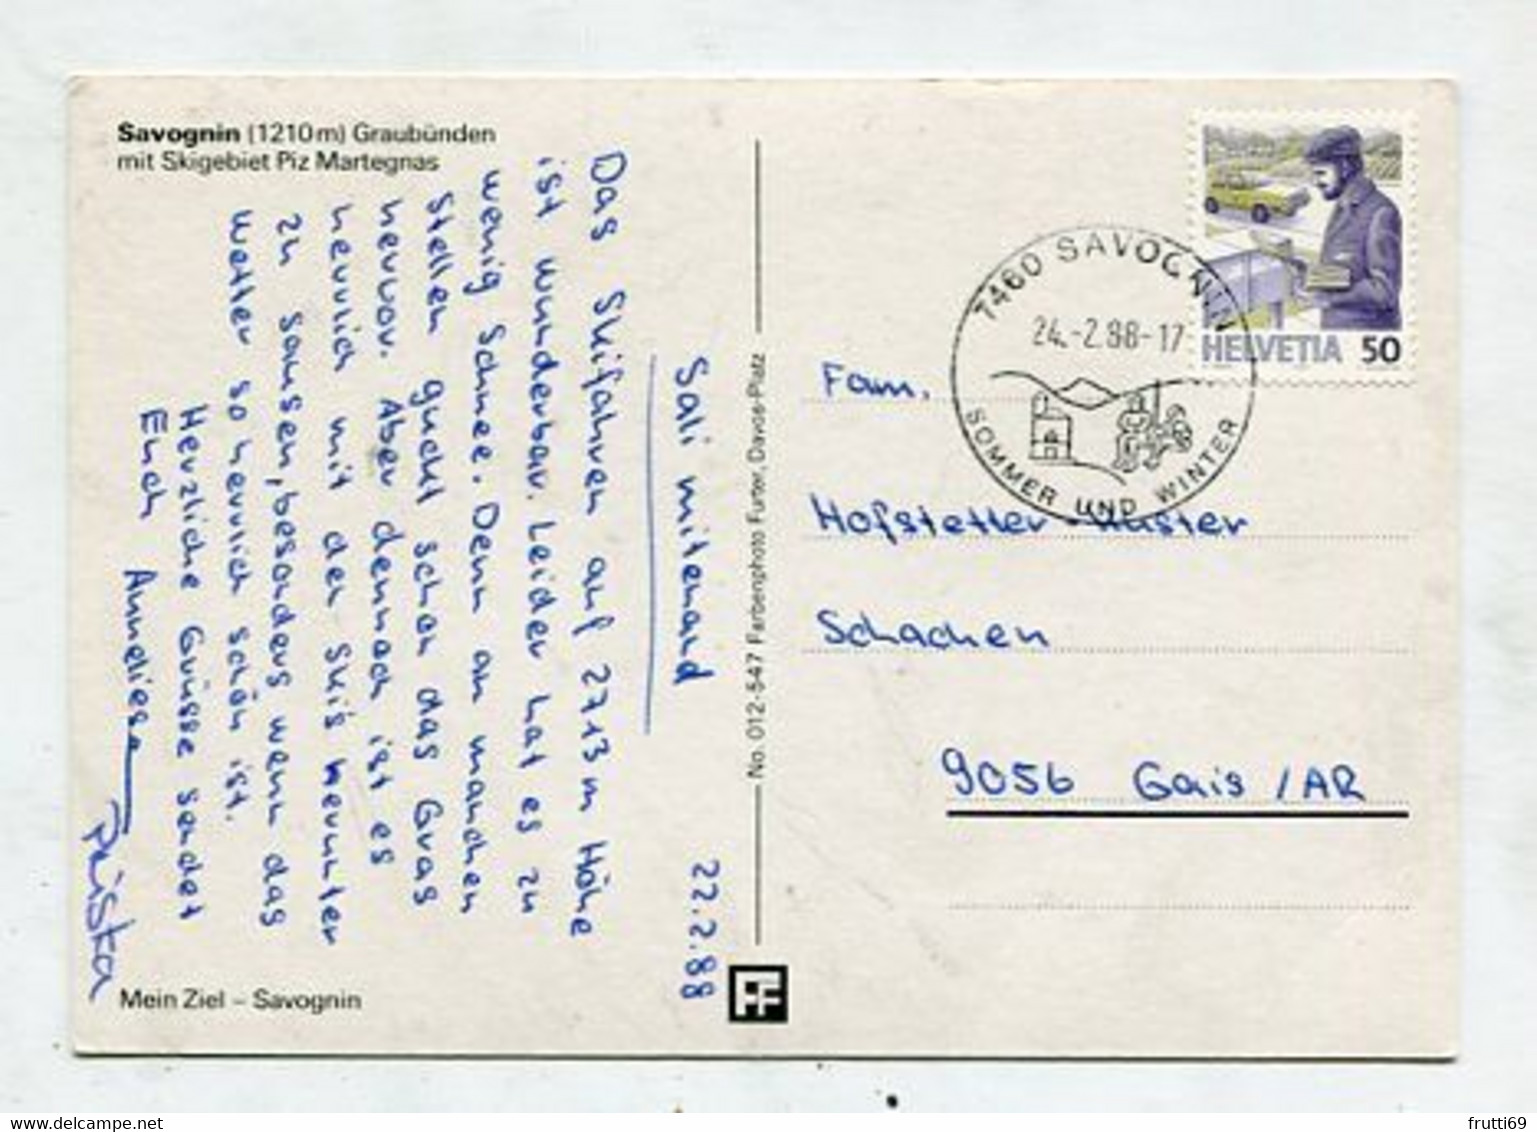 Savognin (1210 m) Graubünden
mit Skigebiet Piz Martegnas
22.2.88
Sali mitenand
Das Skifahren auf 2713 m Höhe
ist wunderbar. Leider hat es zu
wenig Schnee. Denn an manchen
Stellen guckt schon das Gras
hervor. Aber dennoch ist es
herrlich mit den Ski's herunter
zu sausen, besonders wenn das
Wetter so herrlich schön ist.
Herzliche Grüsse sendet
Euch Anneliese
Priska
Mein Ziel – Savognin
No. 012-547 Farbenphoto Furter, Davos-Platz
FF
7460 SAVOGNIN
24.-2.88-17
SOMMER UND WINTER
HELVETIA 50
Fam.
Hofstetter
Schachen
9056 Gais / AR
delcampe.net
frutti69